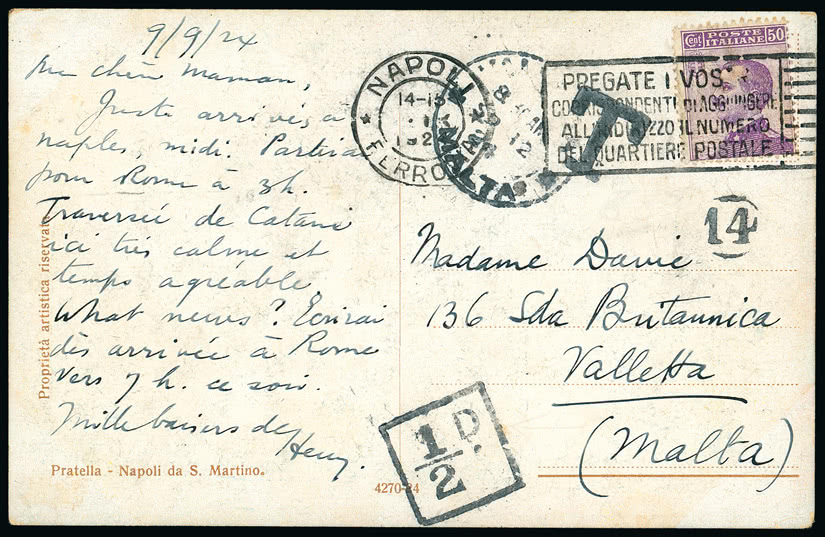 9/9/24
Ma chère Maman,
Juste arrivés à
naples, midi. Partirai
pour Rome à 3h.
Traversée de Catane
ici très calme et
temps agréable.
What news? Ecrirai
dès arrivée à Rome
vers 7 h. ce soir.
Mille baisers de
Henry.
Proprietà artistica riservata
Pratella - Napoli da S. Martino.
4270-24
NAPOLI
14-15
FERROVIA
MALTA
T
PREGATE I VOSTRI
CORRISPONDENTI DI AGGIUNGERE
ALL'INDIRIZZO IL NUMERO
DEL QUARTIERE POSTALE
Cent POSTE ITALIANE 50
14
Madame Davie
136 Sda Britannica
Valletta
(Malta)
1/2 D.